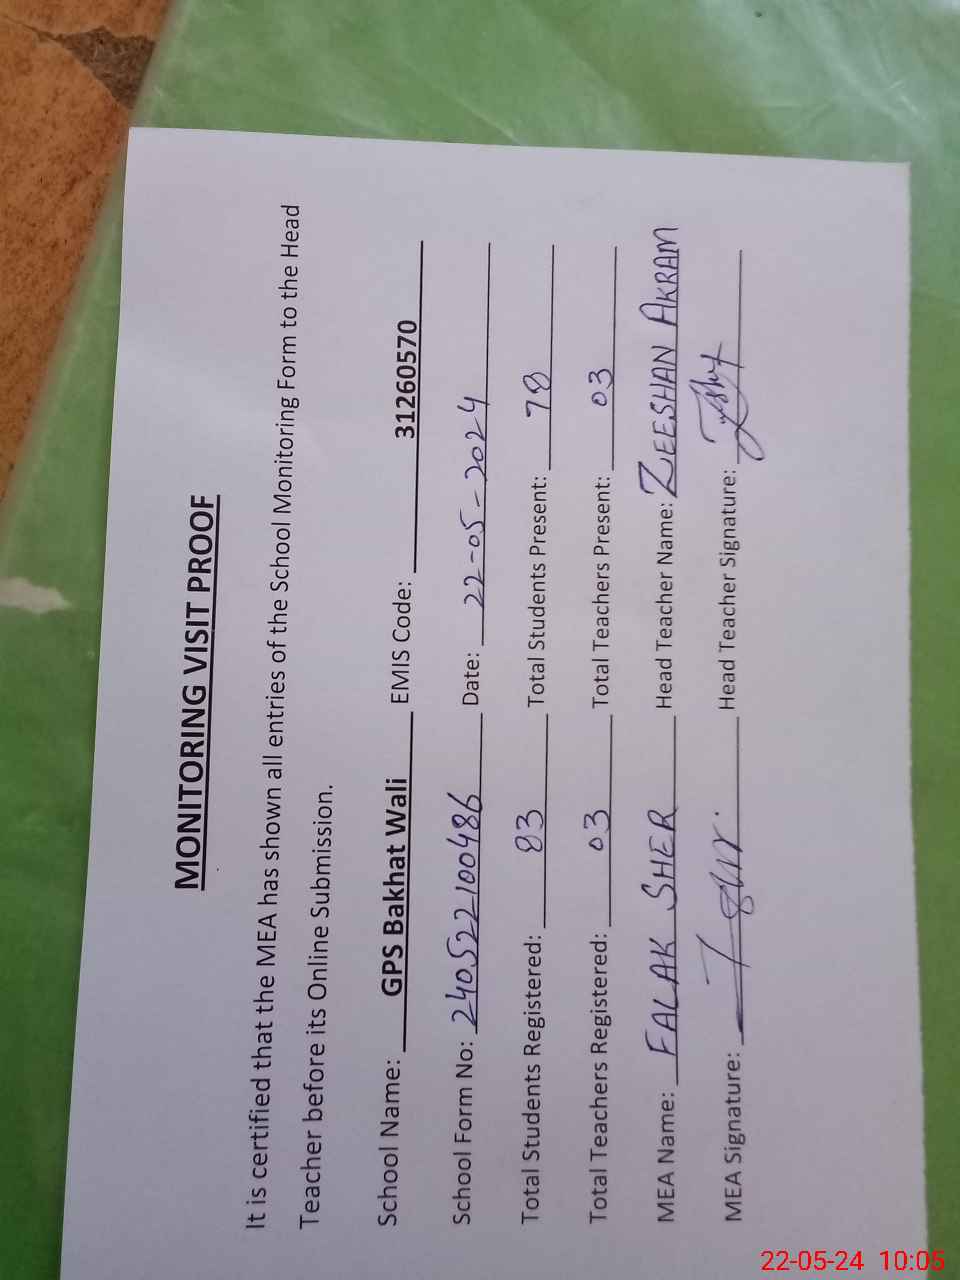 MONITORING VISIT PROOF
It is certified that the MEA has shown all entries of the School Monitoring Form to the Head
Teacher before its Online Submission.
School Name: GPS Bakhat Wali EMIS Code: 31260570
School Form No: 240522100486 Date: 22-05-2024
Total Students Registered: 83 Total Students Present: 78
Total Teachers Registered: 03 Total Teachers Present: 03
MEA Name: FALAK SHER Head Teacher Name: ZEESHAN AKRAM
MEA Signature: Head Teacher Signature:
22-05-24 10:05